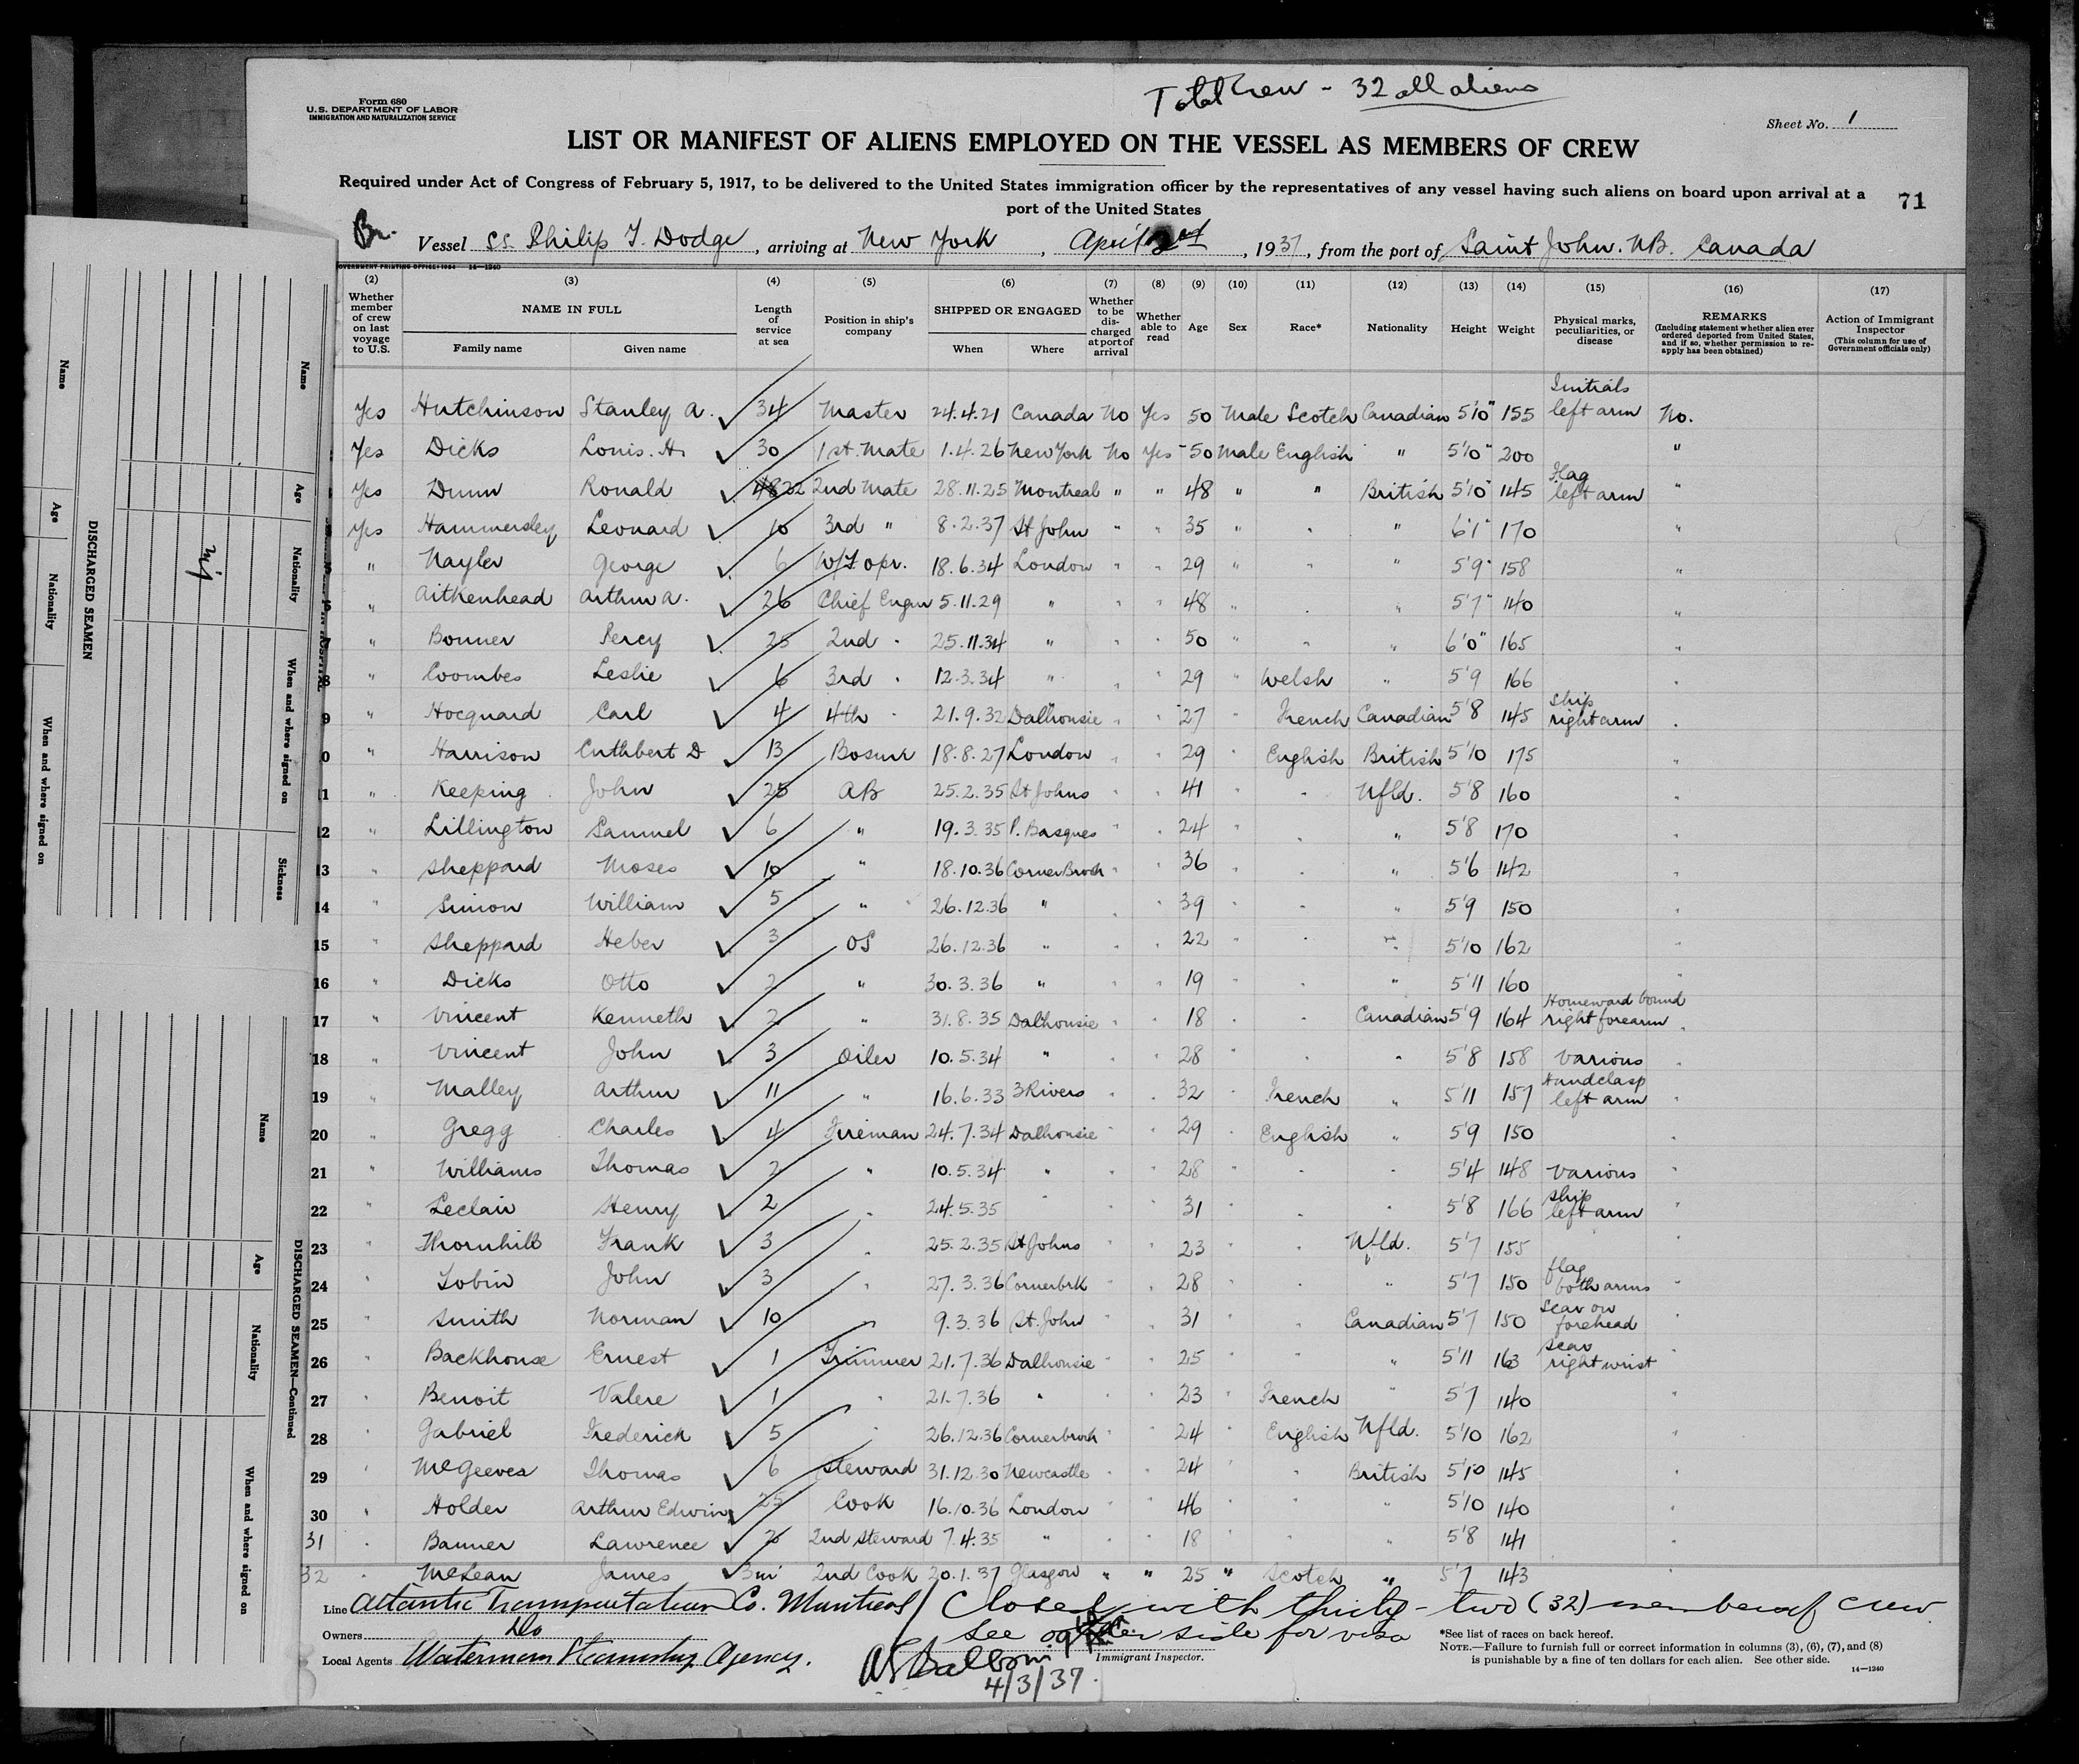 Total Crew - 32 all aliens
Form 680
U.S. DEPARTMENT OF LABOR
IMMIGRATION AND NATURALIZATION SERVICE
Sheet No. 1
LIST OR MANIFEST OF ALIENS EMPLOYED ON THE VESSEL AS MEMBERS OF CREW
Required under Act of Congress of February 5, 1917, to be delivered to the United States immigration officer by the representatives of any vessel having such aliens on board upon arrival at a
port of the United States
71
Br. Vessel SS. Philip T. Dodge, arriving at New York, April 2nd, 1937, from the port of Saint John. NB. Canada
(2) (3) (4) (5) (6) (7) (8) (9) (10) (11) (12) (13) (14) (15) (16) (17)
Whether member of crew on last voyage to U.S. NAME IN FULL Family name Given name Length of service at sea Position in ship's company SHIPPED OR ENGAGED When Where Whether to be discharged at port of arrival Whether able to read Age Sex Race* Nationality Height Weight Physical marks, peculiarities, or disease REMARKS (Including statement whether alien ever ordered deported from United States, and if so, whether permission to re-apply has been obtained) Action of Immigrant Inspector (This column for use of Government officials only)
Yes Hutchinson Stanley A. 34 Master 24.4.21 Canada No Yes 50 Male Scotch Canadian 5'10" 155 Initials left arm No.
Yes Dicks Louis. H. 30 1st. Mate 1.4.26 New York No Yes 50 Male English " 5'10" 200 "
Yes Dunn Ronald 22 2nd Mate 28.11.25 Montreal " " 48 " " British 5'10" 145 Flag left arm "
Yes Hammersley Leonard 10 3rd " 8.2.37 St John " " 35 " " " 6'1" 170 "
" Nayler George 6 W/T opr. 18.6.34 London " " 29 " " " 5'9" 158 "
" Aitkenhead Arthur A. 26 Chief Engnr 5.11.29 " " " 48 " " " 5'7" 140 "
7 " Bonner Percy 25 2nd " 25.11.34 " " " 50 " " " 6'0" 165 "
8 " Coombes Leslie 6 3rd " 12.3.34 " " " 29 " Welsh " 5'9 166 "
9 " Hocquard Carl 4 4th " 21.9.32 Dalhousie " " 27 " French Canadian 5'8 145 Ship right arm "
0 " Harrison Cuthbert D 13 Bosun 18.8.27 London " " 29 " English British 5'10 175 "
1 " Keeping John 25 AB 25.2.35 St Johns " " 41 " " Nfld. 5'8 160 "
12 " Lillington Samuel 6 " 19.3.35 P. Basques " " 24 " " " 5'8 170 "
13 " Sheppard Moses 10 " 18.10.36 Corner Brook " " 36 " " " 5'6 142 "
14 " Simon William 5 " 26.12.36 " " " 39 " " " 5'9 150 "
15 " Sheppard Heber 3 OS 26.12.36 " " " 22 " " " 5'10 162 "
16 " Dicks Otto 2 " 30.3.36 " " " 19 " " " 5'11 160 "
17 " Vincent Kenneth 2 " 31.8.35 Dalhousie " " 18 " " Canadian 5'9 164 Homeward bound right forearm "
18 " Vincent John 3 Oiler 10.5.34 " " " 28 " " " 5'8 158 Various "
19 " Malley Arthur 11 " 16.6.33 3 Rivers " " 32 " French " 5'11 157 Handclasp left arm "
20 " Gregg Charles 4 Fireman 24.7.34 Dalhousie " " 29 " English " 5'9 150 "
21 " Williams Thomas 2 " 10.5.34 " " " 28 " " " 5'4 148 Various "
22 " Leclair Henry 2 " 24.5.35 " " " 31 " " " 5'8 166 Ship left arm "
23 " Thornhill Frank 3 " 25.2.35 St Johns " " 23 " " Nfld. 5'7 155 "
24 " Tobin John 3 " 27.3.36 Cornerbrk " " 28 " " " 5'7 150 flag both arms "
25 " Smith Norman 10 9.3.36 St. John " " 31 " Canadian 5'7 150 Scar on forehead "
26 " Backhouse Ernest 1 Trimmer 21.7.36 Dalhousie " " 25 " " " 5'11 163 Scar right wrist "
27 " Benoit Valere 1 " 21.7.36 " " " 23 " French " 5'7 140 "
28 " Gabriel Frederick 5 " 26.12.36 Cornerbrook " " 24 " English Nfld. 5'10 162 "
29 " McGeever Thomas 6 Steward 31.12.30 Newcastle " " 24 " " British 5'10 145 "
30 " Holder Arthur Edwin 25 Cook 16.10.36 London " " 46 " " " 5'10 140 "
31 " Banner Lawrence 2 2nd Steward 7.4.35 " " " 18 " " " 5'8 141 "
32 " McLean James 3m 2nd Cook 20.1.37 Glasgow " " 25 " Scotch " 5'7 143
Line Atlantic Transportation Co. Montreal
Closed with thirty-two (32) members of crew
Owners Do
See other side for visa
Local Agents Waterman Steamship Agency.
Immigrant Inspector.
4/3/37.
*See list of races on back hereof.
NOTE.—Failure to furnish full or correct information in columns (3), (6), (7), and (8)
is punishable by a fine of ten dollars for each alien. See other side.
14—1240
DISCHARGED SEAMEN
Name Age Nationality When and where signed on
Name Age Nationality When and where signed on Sickness
DISCHARGED SEAMEN—Continued
Name Age Nationality When and where signed on